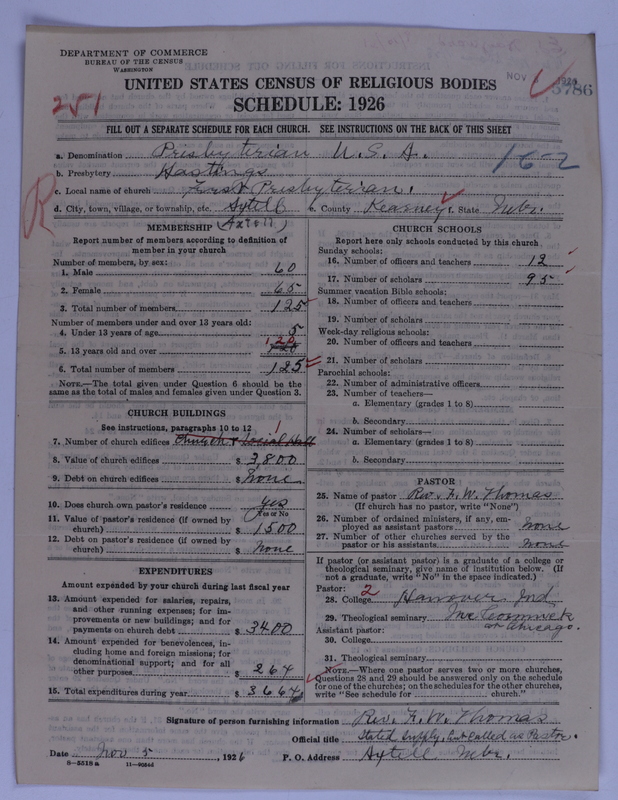 DEPARTMENT OF COMMERCE
BUREAU OF THE CENSUS
WASHINGTON
NOV
1926
5786
UNITED STATES CENSUS OF RELIGIOUS BODIES
SCHEDULE: 1926
251
FILL OUT A SEPARATE SCHEDULE FOR EACH CHURCH. SEE INSTRUCTIONS ON THE BACK OF THIS SHEET
a. Denomination Presbyterian U.S.A.
162
b. Presbytery Hastings
c. Local name of church First Presbyterian.
d. City, town, village, or township, etc. Axtell e. County Kearney f. State Nebr.
R
(Axtell)
MEMBERSHIP
Report number of members according to definition of member in your church
Number of members, by sex:
1. Male 60
2. Female 65
3. Total number of members 125
Number of members under and over 13 years old:
4. Under 13 years of age 5
5. 13 years old and over 120
6. Total number of members 125
NOTE.—The total given under Question 6 should be the same as the total of males and females given under Question 3.
CHURCH BUILDINGS
See instructions, paragraphs 10 to 12
7. Number of church edifices Church & Social Hall 1
8. Value of church edifices $ 3,800
9. Debt on church edifices $ None
10. Does church own pastor's residence yes
Yes or No
11. Value of pastor's residence (if owned by church) $ 1500
12. Debt on pastor's residence (if owned by church) $ None
EXPENDITURES
Amount expended by your church during last fiscal year
13. Amount expended for salaries, repairs, and other running expenses; for improvements or new buildings; and for payments on church debt $ 3400
14. Amount expended for benevolences, including home and foreign missions; for denominational support; and for all other purposes $ 264
15. Total expenditures during year $ 3664
CHURCH SCHOOLS
Report here only schools conducted by this church
Sunday schools:
16. Number of officers and teachers 12
17. Number of scholars 95
Summer vacation Bible schools:
18. Number of officers and teachers
19. Number of scholars
Week-day religious schools:
20. Number of officers and teachers
21. Number of scholars
Parochial schools:
22. Number of administrative officers
23. Number of teachers—
a. Elementary (grades 1 to 8)
b. Secondary
24. Number of scholars—
a. Elementary (grades 1 to 8)
b. Secondary
PASTOR
25. Name of pastor Rev. F. W. Thomas
(If church has no pastor, write "None")
26. Number of ordained ministers, if any, employed as assistant pastors none
27. Number of other churches served by the pastor or his assistants None
If pastor (or assistant pastor) is a graduate of a college or theological seminary, give name of institution below. (If not a graduate, write "No" in the space indicated.)
Pastor: 2
28. College Hanover Ind
29. Theological seminary McCormick
or Chicago.
Assistant pastor:
30. College
31. Theological seminary
NOTE.—Where one pastor serves two or more churches, Questions 28 and 29 should be answered only on the schedule for one of the churches; on the schedules for the other churches, write "See schedule for church."
Signature of person furnishing information Rev. F. W. Thomas
Official title Stated Supply, but called as Pastor.
Date Nov 5, 1926 P. O. Address Axtell Nebr.
8—5518a 11—9064d